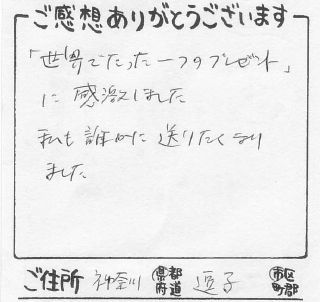 ご感想ありがとうございます
「世界でたった一つのプレゼント」
に感激しました
私も誰かに送りたくなり
ました
ご住所 神奈川 都道府県 逗子 市区町郡